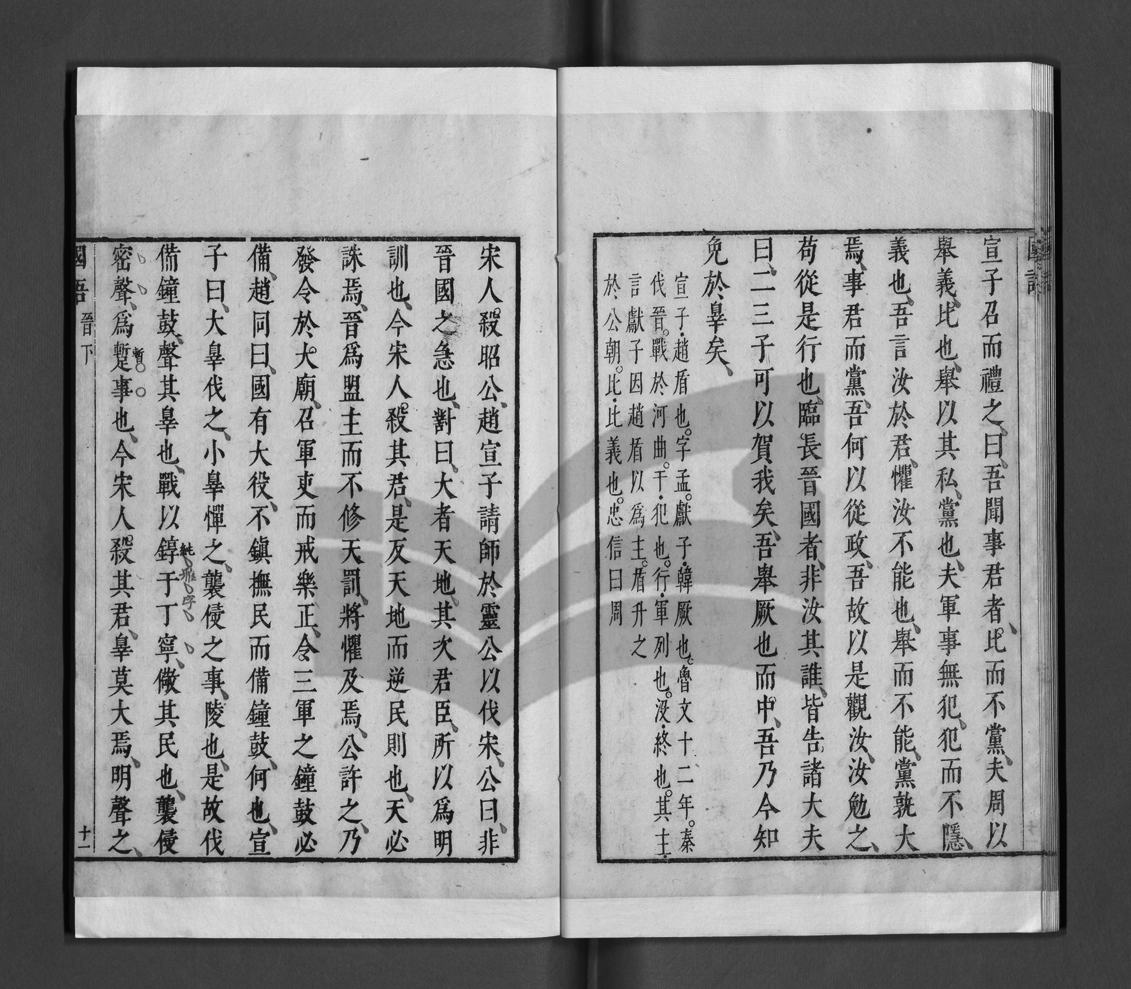 國語
宣子召而禮之、曰、吾聞事君者、比而不黨、夫周以
舉義、比也、舉以其私、黨也、夫軍事無犯、犯而不隱、
義也、吾言汝於君、懼汝不能也、舉而不能、黨孰大
焉、事君而黨、吾何以從政、吾故以是觀汝、汝勉之、
苟從是行也、臨長晉國者、非汝其誰、皆告諸大夫
曰、二三子可以賀我矣、吾舉厥也而中、吾乃今知
免於辠矣、
宣子、趙盾也。字孟。獻子、韓厥也。魯文十二年。秦
伐晉。戰於河曲。干、犯也。行、軍列也。沒、終也。其主、
言獻子因趙盾以爲主。盾升之
於公朝。比、比義也。忠信曰周
宋人殺昭公、趙宣子請師於靈公以伐宋、公曰、非
晉國之急也、對曰、大者天地、其次君臣、所以爲明
訓也、今宋人殺其君、是反天地而逆民則也、天必
誅焉、晉爲盟主而不修天罰、將懼及焉、公許之、乃
發令於大廟、召軍吏而戒樂正、令三軍之鐘鼓必
備、趙同曰、國有大役、不鎮撫民而備鐘鼓、何也、宣
子曰、大辠伐之、小辠憚之、襲侵之事、陵也、是故伐
備鐘鼓、聲其辠也、戰以錞于丁寧、儆其民也、襲侵
密聲、爲蹔事也、今宋人殺其君、辠莫大焉、明聲之、
暫
國語 晉下 十一